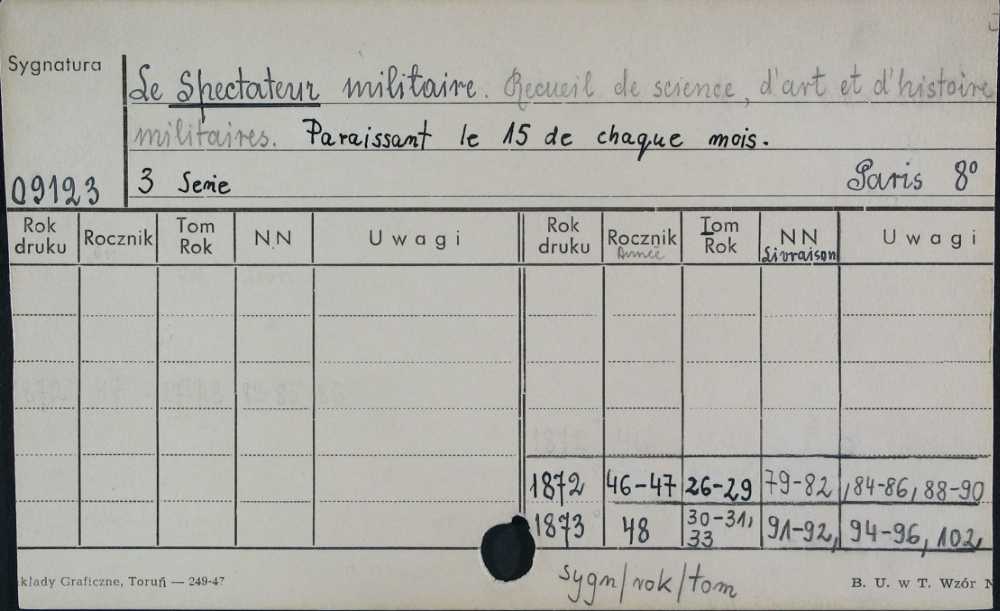 Sygnatura
Le Spectateur militaire. Recueil de science, d'art et d'histoire
militaires. Paraissant le 15 de chaque mois.
09123 3 Serie Paris 8º
Rok druku Rocznik Tom Rok N.N Uwagi Rok druku Rocznik Année Tom Rok NN Livraison Uwagi
1872 46-47 26-29 79-82, 84-86, 88-90
1873 48 30-31, 33 91-92, 94-96, 102
kłady Graficzne, Toruń — 249-47 sygn/rok/tom B. U. w T. Wzór N